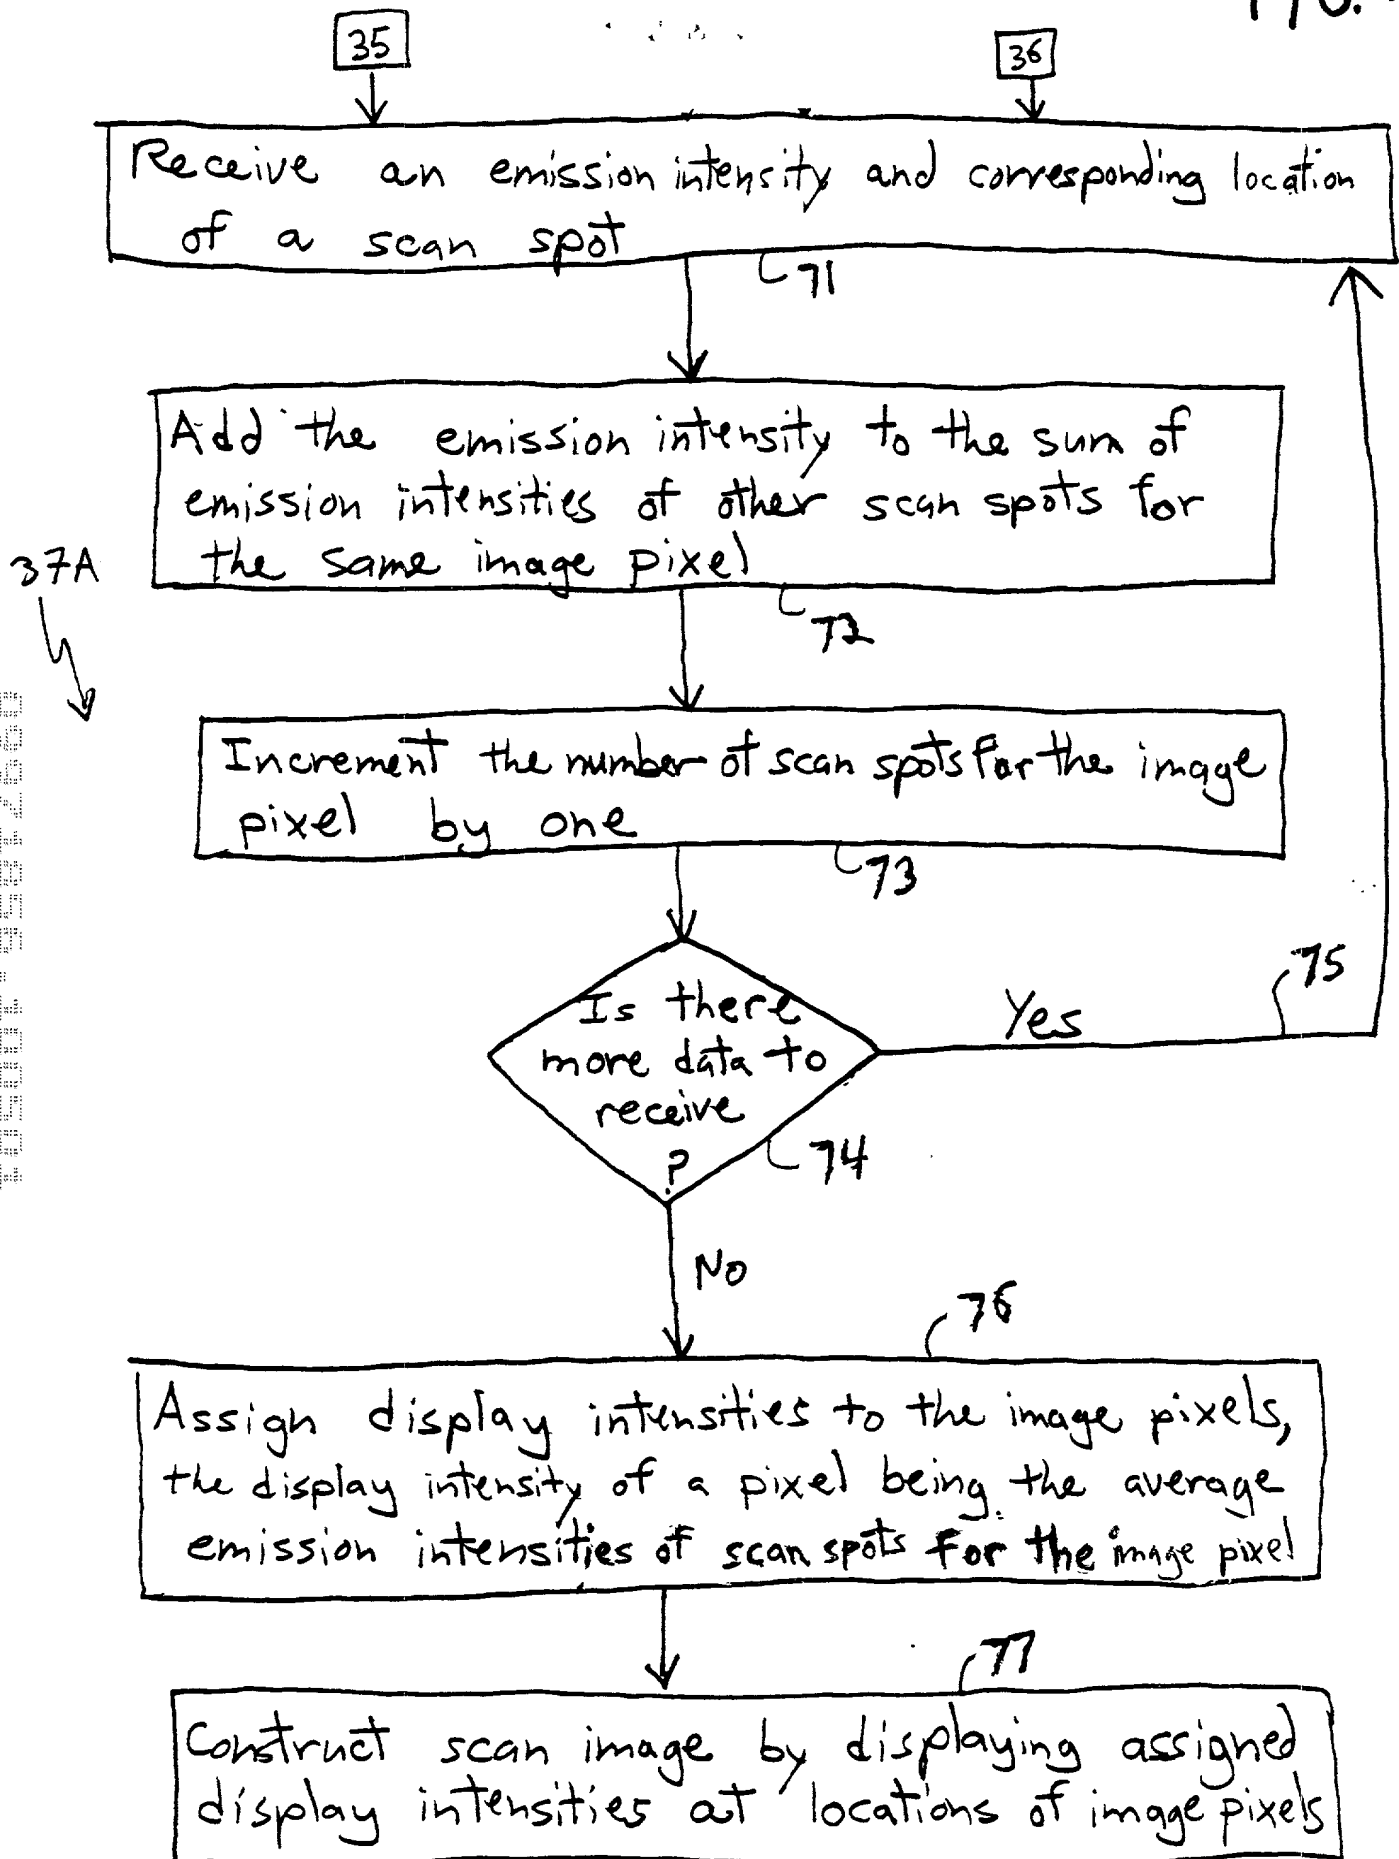 FIG.
35
36
Receive an emission intensity and corresponding location
of a scan spot
71
Add the emission intensity to the sum of
emission intensities of other scan spots for
the same image pixel
37A
72
Increment the number of scan spots for the image
pixel by one
73
Is there
more data to
receive
?
Yes
75
74
No
76
Assign display intensities to the image pixels,
the display intensity of a pixel being the average
emission intensities of scan spots for the image pixel
77
Construct scan image by displaying assigned
display intensities at locations of image pixels